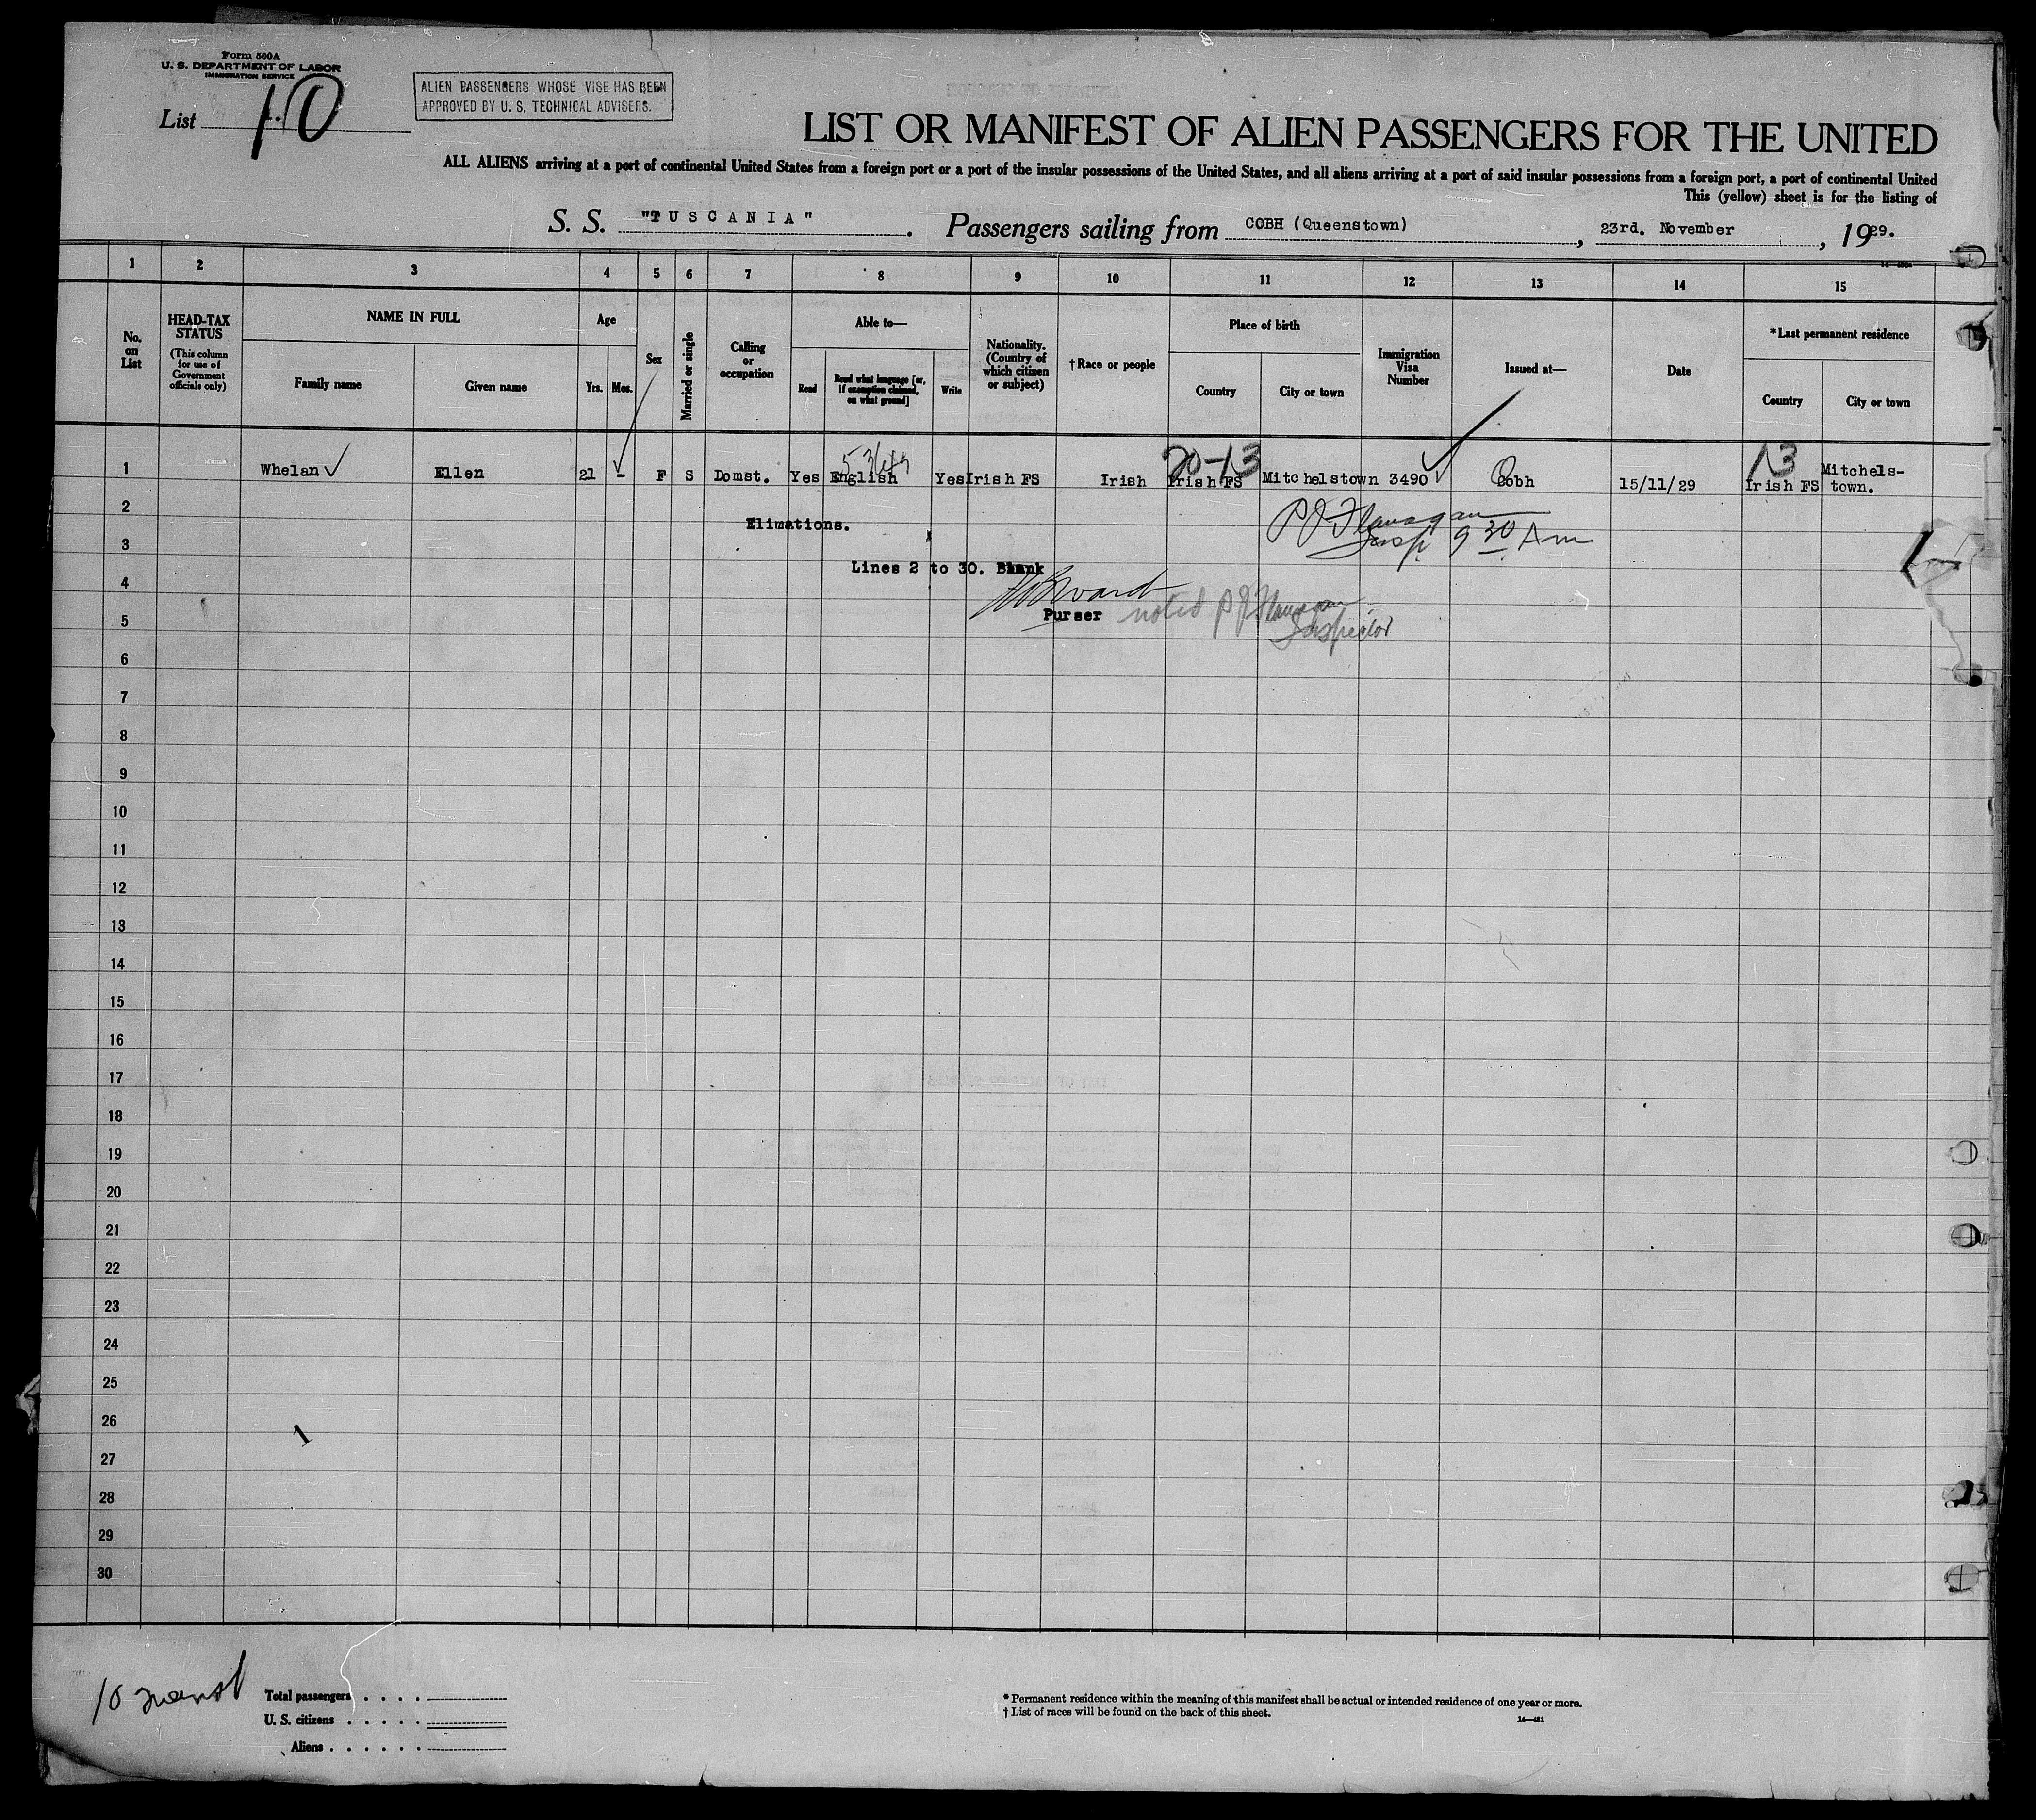 Form 500A
U. S. DEPARTMENT OF LABOR
IMMIGRATION SERVICE
List 10
ALIEN PASSENGERS WHOSE VISE HAS BEEN
APPROVED BY U. S. TECHNICAL ADVISERS.
LIST OR MANIFEST OF ALIEN PASSENGERS FOR THE UNITED
ALL ALIENS arriving at a port of continental United States from a foreign port or a port of the insular possessions of the United States, and all aliens arriving at a port of said insular possessions from a foreign port, a port of continental United
This (yellow) sheet is for the listing of
S. S. "TUSCANIA". Passengers sailing from COBH (Queenstown), 23rd. November, 1929.
1 2 3 4 5 6 7 8 9 10 11 12 13 14 15
No. on List
HEAD-TAX STATUS
(This column for use of Government officials only)
NAME IN FULL
Family name
Given name
Age
Yrs. Mos.
Sex
Married or single
Calling or occupation
Able to—
Read
Read what language [or, if exemption claimed, on what ground]
Write
Nationality. (Country of which citizen or subject)
†Race or people
Place of birth
Country
City or town
Immigration Visa Number
Issued at—
Date
*Last permanent residence
Country
City or town
20-13 13
1 Whelan ✓ Ellen 21 - F S Domst. Yes English Yes Irish FS Irish Irish FS Mitchelstown 3490 Cobh 15/11/29 Irish FS Mitchels-
town.
2 Elimations.
P J Flanagan
Insp. 9 30 Am
3
Lines 2 to 30. Blank
4
Purser noted P J Flanagan
Inspector
5
6
7
8
9
10
11
12
13
14
15
16
17
18
19
20
21
22
23
24
25
26
1
27
28
29
30
10
Total passengers . . . .
U. S. citizens . . . . .
Aliens . . . . . .
* Permanent residence within the meaning of this manifest shall be actual or intended residence of one year or more.
† List of races will be found on the back of this sheet.
14—421